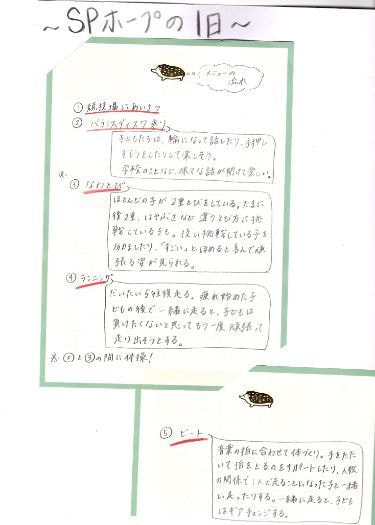 ～SPホープの1日～
メニューの
流れ
① 競技場にあいさつ
② バランスディスク乗り
子どもたちは、輪になって話したり、手押し
ずもうをしたりして楽しそう。
学校のことなど、様々な話が聞けて楽しい。
※
③ なわとび
ほとんどの子が2重とびをしている。たまに
後2重、はやぶさなど違うとび方に挑
戦している子も。後い挑戦している子を
「すごい」とほめると喜んで頑
張る姿が見られる。
④ ランニング
だいたい5往復走る。疲れ始めた子
どもの後で一緒に走ると、子どもは
負けたくないと思ってもう一度頑張って
走り出そうとする。
※②と③の間に体操！
⑤ ビート
音楽の拍に合わせて体づくり。手をたた
いて拍をとるのをサポートしたり、人数
の関係で1人で走ることになった子と一緒
に走ったりする。一緒に走ると、子ども
はギアチェンジする。